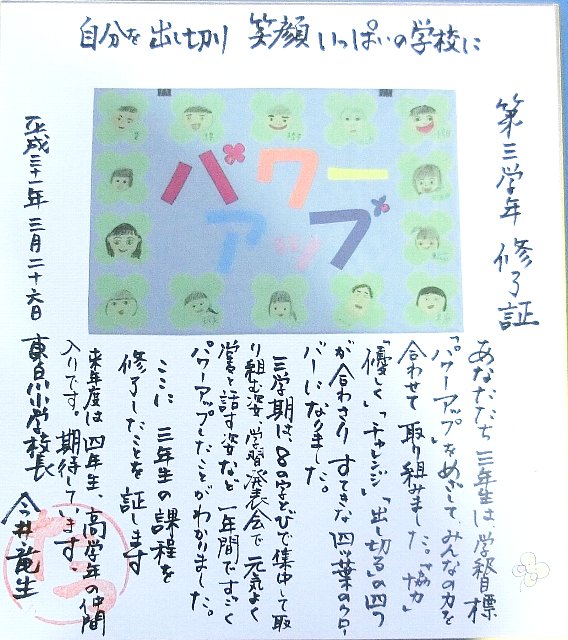 自分を出し切り 笑顔いっぱいの学校に
パワー
アップ
第三学年 修了証
あなたたち三年生は、学習目標
「パワーアップ」をめざして、みんなの力を
合わせて取り組みました。「協力」
「優しく」「チャレンジ」「出し切る」の四つ
が合わさり すてきな四ツ葉のクロー
バーになりました。
三学期は、8の字とびで集中して取
り組む姿、学習発表会で元気よく
堂々と話す姿など一年間ですごく
パワーアップしたことがわかりました。
ここに 三年生の課程を
修了したことを 証します
来年度は 四年生、高学年の仲間
入りです。期待しています。
平成三十一年 三月二十六日
小学校長 今井竜生